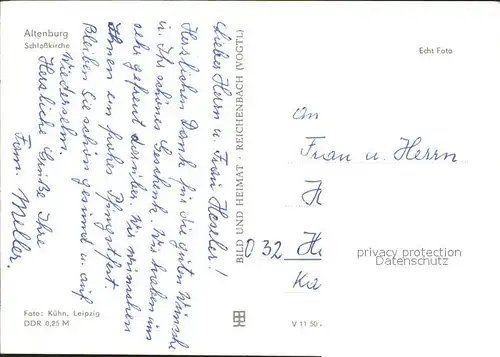 Altenburg
Schloßkirche
Lieber Herr u. Frau Heseler!
Herzlichen Dank für die guten Wünsche
u. Ihr schönes Geschenk. Wir haben uns
sehr gefreut darüber. Wir wünschen
Ihnen ein frohes Pfingstfest.
Bleiben Sie schön gesund u. auf
Wiedersehn.
Herzliche Grüße Ihre
Fam. Meller.
Foto: Kühn, Leipzig
DDR 0,25 M
BILD UND HEIMAT · REICHENBACH (VOGTL)
V 11 50
Echt Foto
An
Frau u. Herrn
H
032 He
Ka
privacy protection
Datenschutz